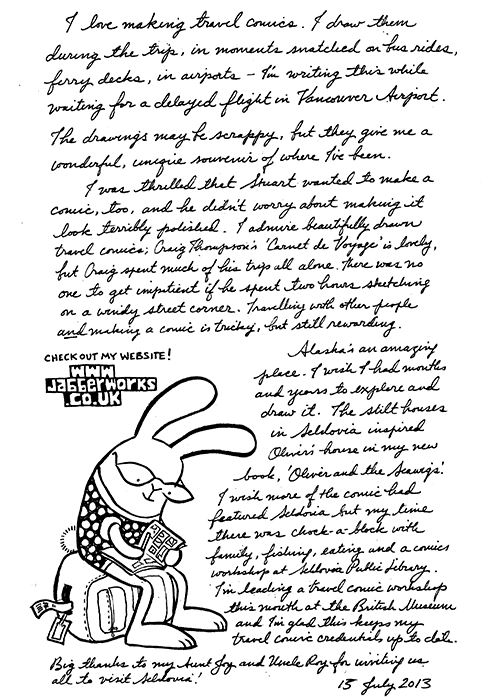 I love making travel comics. I draw them
during the trip, in moments snatched on bus rides,
ferry decks, in airports – I'm writing this while
waiting for a delayed flight in Vancouver Airport.
The drawings may be scrappy, but they give me a
wonderful, unique souvenir of where I've been.
I was thrilled that Stuart wanted to make a
comic, too, and he didn't worry about making it
look terribly polished. I admire beautifully drawn
travel comics; Craig Thompson's 'Carnet de Voyage' is lovely,
but Craig spent much of his trip all alone. There was no
one to get impatient if he spent two hours sketching
on a windy street corner. Travelling with other people
and making a comic is tricky, but still rewarding.
CHECK OUT MY WEBSITE!
WWW
JABBERWORKS
.CO.UK
Alaska's an amazing
place. I wish I had months
and years to explore and
draw it. The stilt houses
in Seldovia inspired
Oliver's house in my new
book, 'Oliver and the Seawigs'.
I wish more of the comic had
featured Seldovia but my time
there was chock-a-block with
family, fishing, eating and a comics
workshop at Seldovia Public Library.
I'm leading a travel comic workshop
this month at the British Museum
and I'm glad this keeps my
travel comic credentials up to date.
Big thanks to my Aunt Joy and Uncle Roy for inviting us
all to visit Seldovia!
15 July 2013